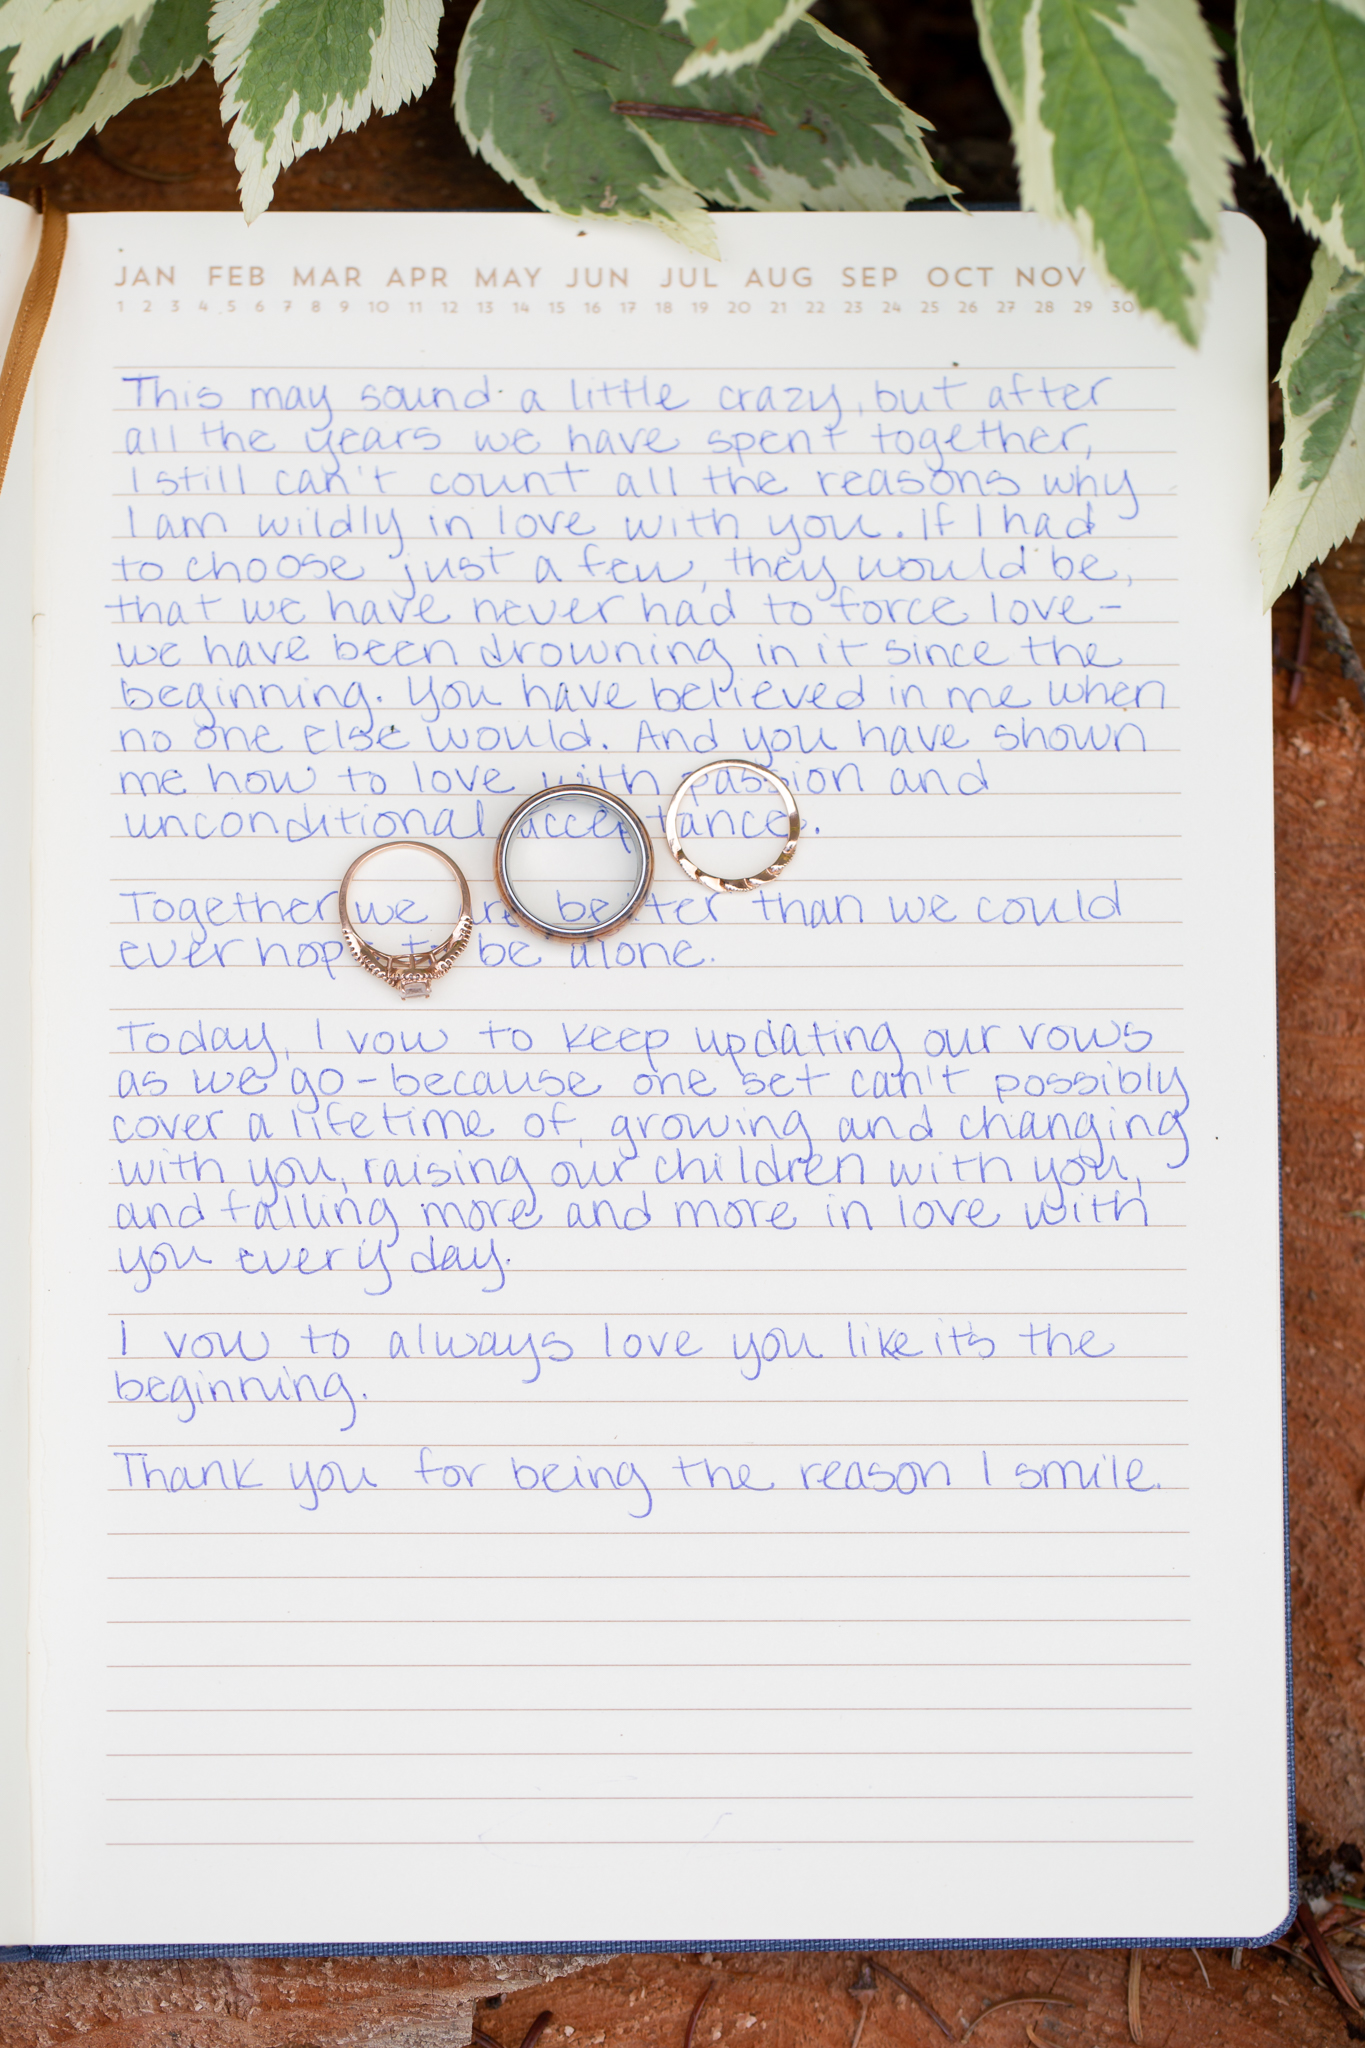 JAN FEB MAR APR MAY JUN JUL AUG SEP OCT NOV
1 2 3 4 5 6 7 8 9 10 11 12 13 14 15 16 17 18 19 20 21 22 23 24 25 26 27 28 29 30
This may sound a little crazy, but after
all the years we have spent together,
I still can't count all the reasons why
I am wildly in love with you. If I had
to choose just a few, they would be,
that we have never had to force love-
we have been drowning in it since the
beginning. You have believed in me when
no one else would. And you have shown
me how to love with passion and
unconditional acceptance.
Together we are better than we could
ever hope to be alone.
Today, I vow to keep updating our vows
as we go-because one set can't possibly
cover a lifetime of, growing and changing
with you, raising our children with you,
and falling more and more in love with
you every day.
I vow to always love you like it's the
beginning.
Thank you for being the reason I smile.